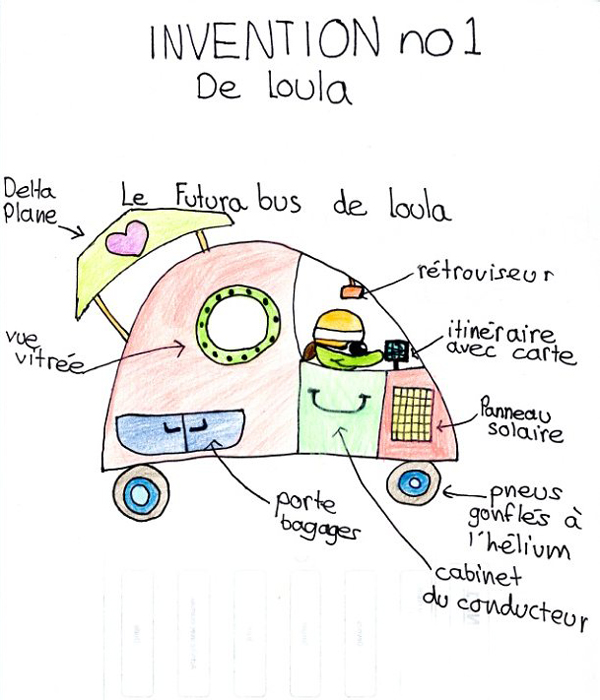 INVENTION no 1
De loula
Le Futura bus de loula
Delta
Plane
rétroviseur
itinéraire
avec carte
vue
vitrée
Panneau
solaire
porte
bagages
pneus
gonflés à
l'hélium
cabinet
du conducteur